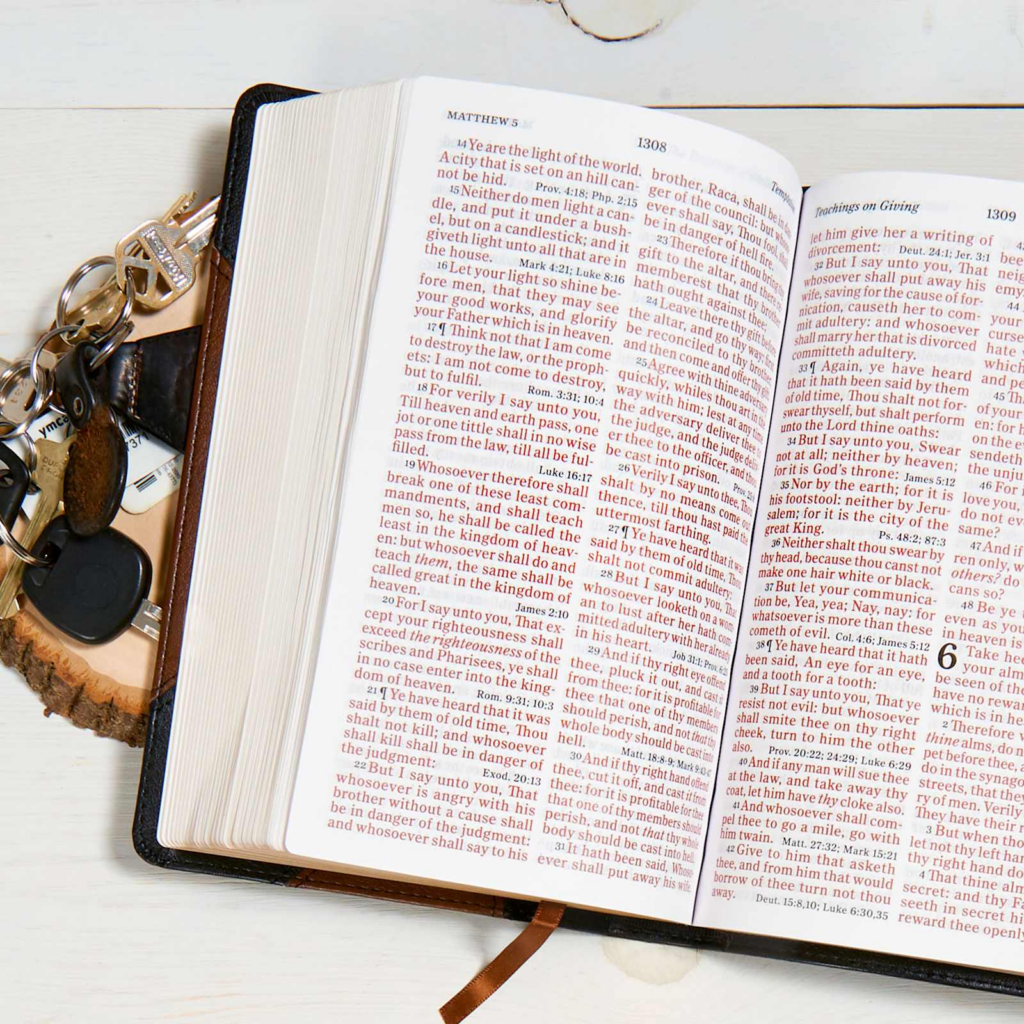 MATTHEW 5
1308
14 Ye are the light of the world.
A city that is set on an hill can-
not be hid. Prov. 4:18; Php. 2:15
15 Neither do men light a can-
dle, and put it under a bush-
el, but on a candlestick; and it
giveth light unto all that are in
the house. Mark 4:21; Luke 8:16
16 Let your light so shine be-
fore men, that they may see
your good works, and glorify
your Father which is in heaven.
17 ¶ Think not that I am come
to destroy the law, or the proph-
ets: I am not come to destroy,
but to fulfil. Rom. 3:31; 10:4
18 For verily I say unto you,
Till heaven and earth pass, one
jot or one tittle shall in no wise
pass from the law, till all be ful-
filled. Luke 16:17
19 Whosoever therefore shall
break one of these least com-
mandments, and shall teach
men so, he shall be called the
least in the kingdom of heav-
en: but whosoever shall do and
teach them, the same shall be
called great in the kingdom of
heaven. James 2:10
20 For I say unto you, That ex-
cept your righteousness shall
exceed the righteousness of the
scribes and Pharisees, ye shall
in no case enter into the king-
dom of heaven. Rom. 9:31; 10:3
21 ¶ Ye have heard that it was
said by them of old time, Thou
shalt not kill; and whosoever
shall kill shall be in danger of
the judgment: Exod. 20:13
22 But I say unto you, That
whosoever is angry with his
brother without a cause shall
be in danger of the judgment:
and whosoever shall say to his
brother, Raca, shall be in
ger of the council: but
ever shall say, Thou fool,
be in danger of hell fire.
23 Therefore if thou bring
gift to the altar, and there
memberest that thy brother
hath ought against thee;
24 Leave there thy gift before
the altar, and go thy way; first
be reconciled to thy brother,
and then come and offer thy gift.
25 Agree with thine adversary
quickly, whiles thou art in the
way with him; lest at any time
the adversary deliver thee to
the judge, and the judge deliv-
er thee to the officer, and thou
be cast into prison.
26 Verily I say unto thee, Thou
shalt by no means come out
thence, till thou hast paid the
uttermost farthing.
27 ¶ Ye have heard that it was
said by them of old time, Thou
shalt not commit adultery:
28 But I say unto you, That
whosoever looketh on a wom-
an to lust after her hath com-
mitted adultery with her already
in his heart. Job 31:1; Prov. 6:25
29 And if thy right eye offend
thee, pluck it out, and cast it
from thee: for it is profitable for
thee that one of thy members
should perish, and not that thy
whole body should be cast into
hell. Matt. 18:8-9; Mark 9:43-47
30 And if thy right hand offend
thee, cut it off, and cast it from
thee: for it is profitable for thee
that one of thy members should
perish, and not that thy whole
body should be cast into hell.
31 It hath been said, Whoso-
ever shall put away his wife,
Teachings on Giving
1309
let him give her a writing of
divorcement: Deut. 24:1; Jer. 3:1
32 But I say unto you, That
whosoever shall put away his
wife, saving for the cause of for-
nication, causeth her to com-
mit adultery: and whosoever
shall marry her that is divorced
committeth adultery.
33 ¶ Again, ye have heard
that it hath been said by them
of old time, Thou shalt not for-
swear thyself, but shalt perform
unto the Lord thine oaths:
34 But I say unto you, Swear
not at all; neither by heaven;
for it is God's throne: James 5:12
35 Nor by the earth; for it is
his footstool: neither by Jeru-
salem; for it is the city of the
great King. Ps. 48:2; 87:3
36 Neither shalt thou swear by
thy head, because thou canst not
make one hair white or black.
37 But let your communica-
tion be, Yea, yea; Nay, nay: for
whatsoever is more than these
cometh of evil. Col. 4:6; James 5:12
38 ¶ Ye have heard that it hath
been said, An eye for an eye,
and a tooth for a tooth:
39 But I say unto you, That ye
resist not evil: but whosoever
shall smite thee on thy right
cheek, turn to him the other
also. Prov. 20:22; 24:29; Luke 6:29
40 And if any man will sue thee
at the law, and take away thy
coat, let him have thy cloke also.
41 And whosoever shall com-
pel thee to go a mile, go with
him twain. Matt. 27:32; Mark 15:21
42 Give to him that asketh
thee, and from him that would
borrow of thee turn not thou
away. Deut. 15:8,10; Luke 6:30,35
been
neig
enemy
44
your
curse
hate
which
and pe
45 Th
of your
en: for h
on the e
sendeth
the unju
46 For i
love you,
do not ev
same?
47 And if
ren only, w
others? do
cans so?
48 Be ye
even as yo
in heaven is
6 Take hee
your alm
be seen of the
have no rewa
which is in he
2 Therefore w
thine alms, do n
pet before thee, a
do in the synago
streets, that they
ry of men. Verily
They have their r
3 But when tho
let not thy left han
thy right hand do
4 That thine alm
secret: and thy Fa
seeth in secret hi
reward thee openly
ymca